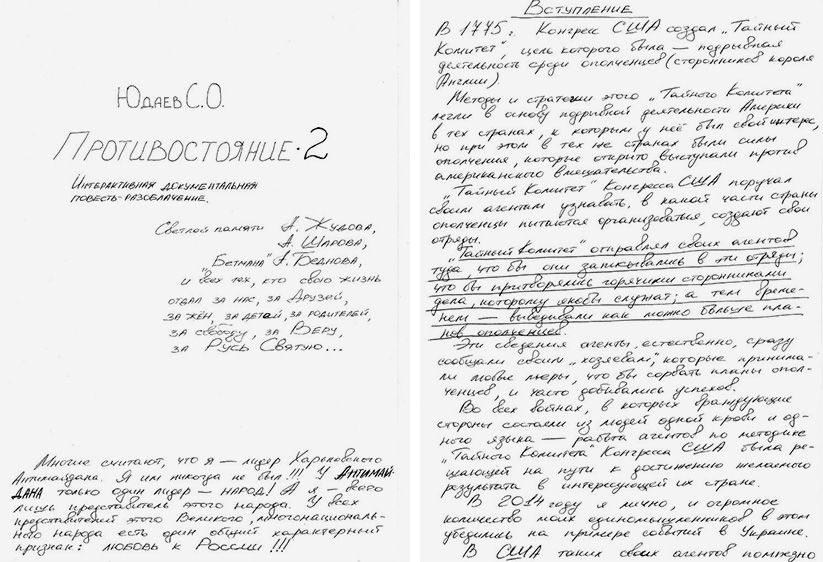 Юдаев С.О.
Противостояние·2
Интерактивная документальная
повесть-разоблачение.
Светлой памяти А. Жудова,
А. Шарова,
"Бетмана" А. Беднова,
и всех тех, кто свою жизнь
отдал за нас, за Друзей,
за жён, за детей, за родителей,
за свободу, за Веру,
за Русь Святую...
Многие считают, что я – лидер Харьковского
Антимайдана. Я им никогда не был!!! У Антимай-
дана только один лидер – народ! А я – всего
лишь представитель этого народа. У всех
представителей этого Великого, многонациональ-
ного народа есть один общий характерный
признак: любовь к России!!!
Вступление
В 1775г. Конгресс США создал „Тайный
Комитет", цель которого была – подрывная
деятельность среди ополченцев (сторонников короля
Англии)
Методы и стратегии этого „Тайного Комитета"
легли в основу подрывной деятельности Америки
в тех странах, к которым у неё был свой интерес,
но при этом в тех же странах были силы
ополчения, которые открыто выступали против
американского вмешательства.
„Тайный Комитет" Конгресса США поручал
своим агентам узнавать, в какой части страны
ополченцы пытаются организоваться, создают свои
отряды.
„Тайный Комитет" отправлял своих агентов
туда, что бы они записывались в эти отряды;
что бы притворялись горячими сторонниками
дела, которому якобы служат; а тем време-
нем – выведывали как можно больше пла-
нов ополченцев.
Эти сведения агенты, естественно, сразу
сообщали своим „хозяевам", которые принима-
ли любые меры, что бы сорвать планы опол-
ченцев, и часто добивались успехов.
Во всех войнах, в которых враждующие
стороны состояли из людей одной крови и од-
ного языка – работа агентов по методике
„Тайного Комитета" Конгресса США была ре-
шающей на пути к достижению желаемого
результата в интересующей их стране.
В 2014 году я лично, и огромное
количество моих единомышленников в этом
убедились на примере событий в Украине.
В США таких своих агентов помпезно